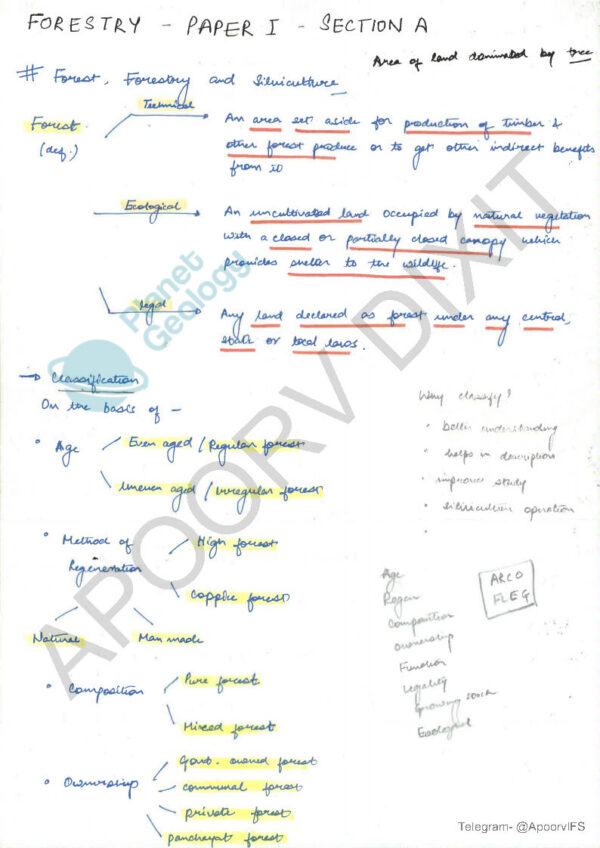 FORESTRY - PAPER I - SECTION A
Area of land dominated by tree
# Forest, Forestry and Silviculture
Forest (def.)
Technical
An area set aside for production of timber &
other forest produce or to get other indirect benefits
from it
Ecological
An uncultivated land occupied by natural vegetation
with a closed or partially closed canopy which
provides shelter to the wildlife.
legal
Any land declared as forest under any central,
state or local laws.
→ Classification
On the basis of -
• Age
Even aged / Regular forest
Uneven aged / Irregular forest
• Method of
Regeneration
High forest
Coppice forest
Natural
Man made
• Composition
Pure forest
Mixed forest
• Ownership
Govt. owned forest
communal forest
private forest
panchayat forest
Why classify?
• better understanding
• helps in description
• improves study
• silviculture operation
•
Age
Regen
Composition
Ownership
Function
legality
Growing stock
Ecological
ARCO
FLEG
Planet
Geology
APOORV DIXIT
Telegram- @ApoorvIFS